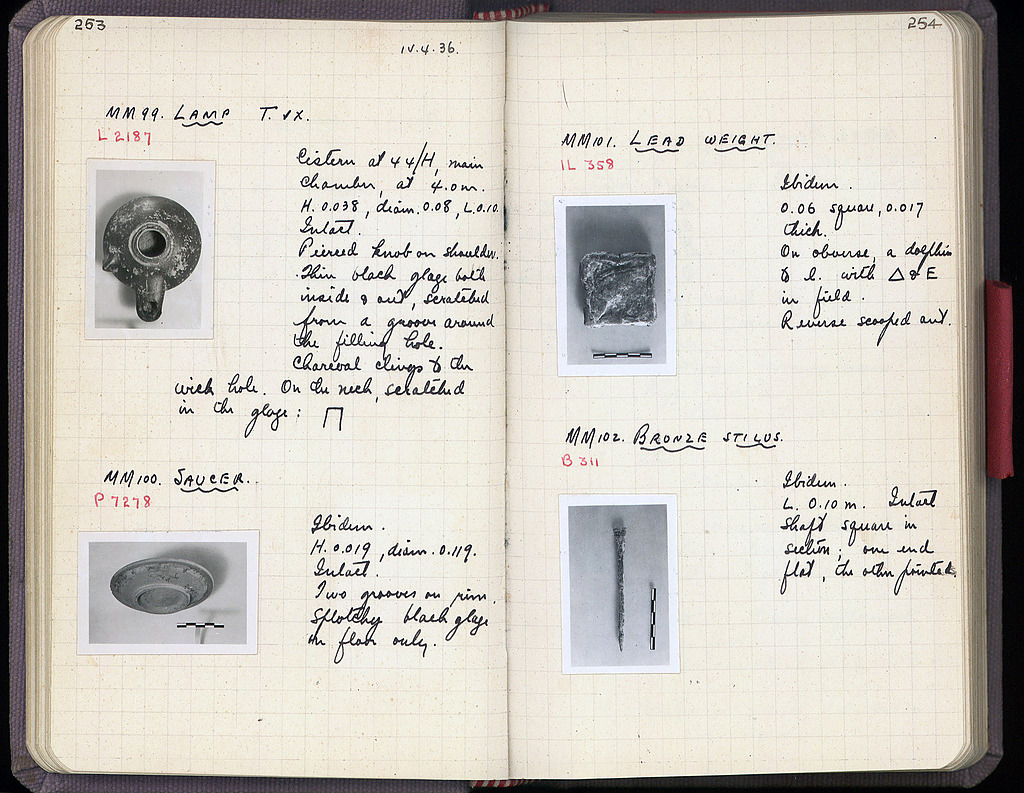 253
IV.4.36.
MM99. LAMP T. IX.
L 2187
Cistern at 44/H, main
chamber, at 4.0m.
H. 0.038, diam. 0.08, L. 0.10.
Intact.
Pierced knob on shoulder.
Thin black glaze both
inside & out, scratched
from a groove around
the filling hole.
Charcoal clings to the
wick hole. On the neck, scratched
in the glaze: Π
MM100. SAUCER.
P 7278
Ibidem.
H. 0.019, diam. 0.119.
Intact.
Two grooves on rim.
Splotchy black glaze
on floor only.
254
MM101. LEAD WEIGHT.
IL 358
Ibidem.
0.06 square, 0.017
thick.
On obverse, a dolphin
to l. with Δ & E
in field.
Reverse scooped out.
MM102. BRONZE STILUS.
B 311
Ibidem.
L. 0.10 m. Intact
Shaft square in
section; one end
flat, the other pointed.